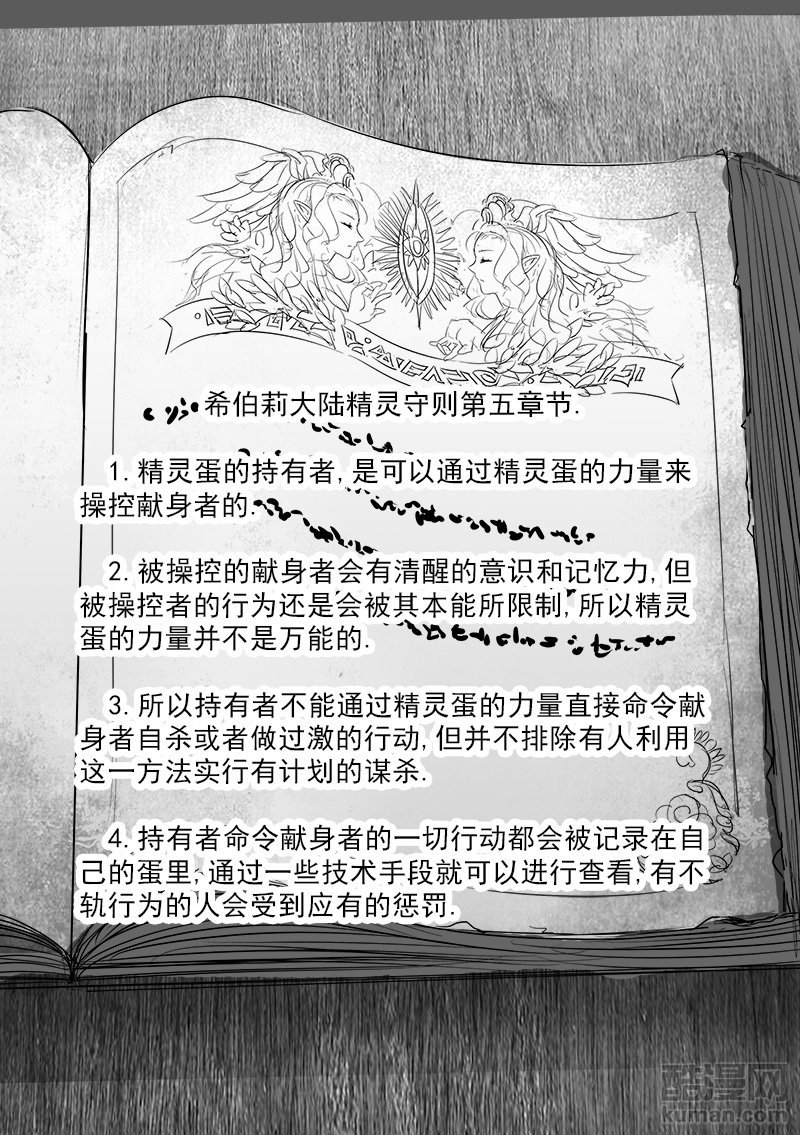 希伯莉大陆精灵守则第五章节.
1.精灵蛋的持有者,是可以通过精灵蛋的力量来
操控献身者的.
2.被操控的献身者会有清醒的意识和记忆力,但
被操控者的行为还是会被其本能所限制,所以精灵
蛋的力量并不是万能的.
3.所以持有者不能通过精灵蛋的力量直接命令献
身者自杀或者做过激的行动,但并不排除有人利用
这一方法实行有计划的谋杀.
4.持有者命令献身者的一切行动都会被记录在自
己的蛋里,通过一些技术手段就可以进行查看,有不
轨行为的人会受到应有的惩罚.
酷漫网
kuman.com